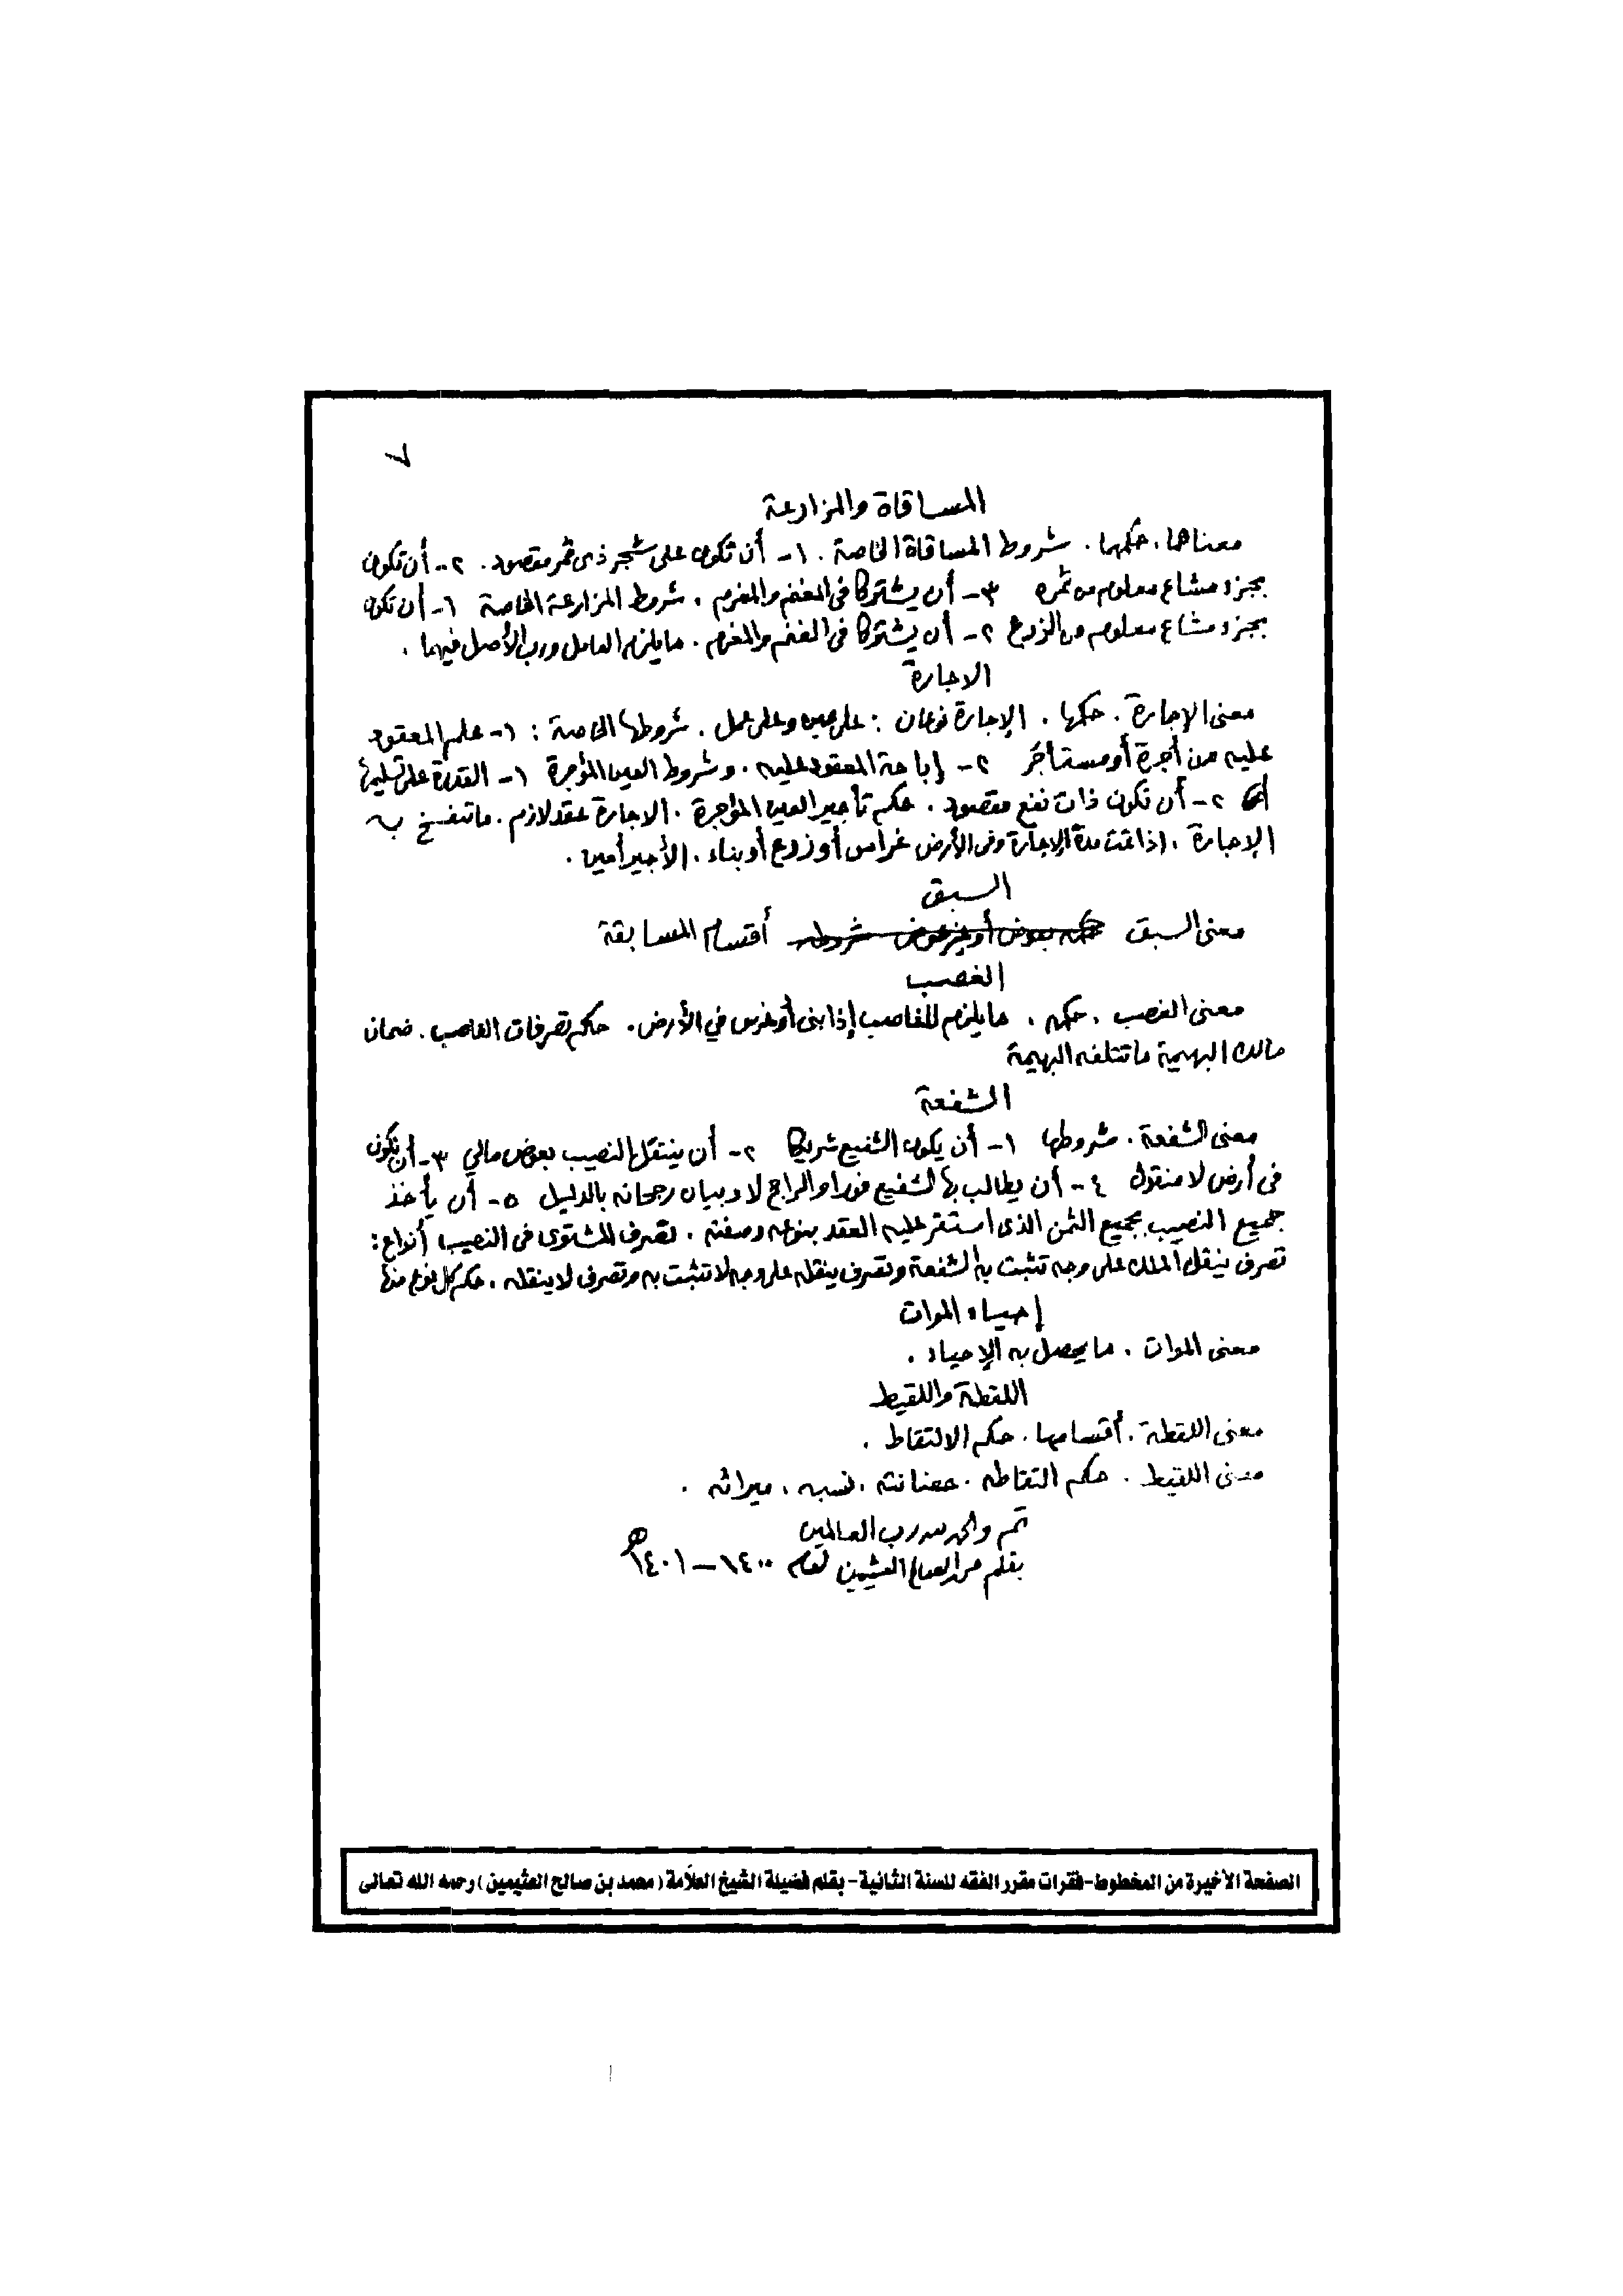 ٧
المساقاة والمزارعة
معناها. حكمها. شروط المساقاة الخاصة. ١- أن تكون على شجر ذى ثمر مقصود. ٢- أن تكون
بجزء مشاع معلوم من ثمره ٣- أن يشتركا فى المغنم والمغرم. شروط المزارعة الخاصة ١- أن تكون
بجزء مشاع معلوم من الزرع ٢- أن يشتركا فى المغنم والمغرم. ما يلزم العامل ورب الأصل فيهما.
الاجارة
معنى الإجارة. حكمها. الإجارة نوعان: على عين وعلى عمل. شروطها الخاصة: ١- علم المعقود
عليه من أجرة أو مستأجَر ٢- إباحة المعقود عليه. وشروط العين المؤجرة ١- القدرة على تسليمها
٢- أن تكون ذات نفع مقصود. حكم تأجير العين المؤاجرة. الاجارة عقد لازم. ما تنفسخ به
الإجارة. إذا تمت مدة الإجارة وفى الأرض غراس أو زرع أو بناء. الأجير أمين.
السبق
معنى السبق حكمه بعوض أو بغير عوض شروطه أقسام المسابقة
الغصب
معنى الغصب. حكمه. ما يلزم الغاصب إذا بنى أو غرس في الأرض. حكم تصرفات الغاصب. ضمان
مالك البهيمة ما تتلفه البهيمة
الشفعة
معنى الشفعة. شروطها ١- أن يكون الشفيع شريكا ٢- أن ينتقل النصيب بعوض مالي ٣- أن يكون
فى أرض لا منقول ٤- أن يطالب بها الشفيع فورا والراجح لا وبيان رجحانه بالدليل ٥- أن يأخذ
جميع النصيب بجميع الثمن الذى استقر عليه العقد بنوعه وصفته. تصرف المشترى فى النصيب أنواع:
تصرف ينقل الملك على وجه تثبت به الشفعة وتصرف ينقله على وجه لا تثبت به وتصرف لا ينقله. حكم كل نوع منها
إحياء الموات
معنى الموات. ما يحصل به الإحياء.
اللقطة واللقيط
معنى اللقطة. أقسامها. حكم الالتقاط.
معنى اللقيط. حكم التقاطه. حضانته. نسبه. ميراثه.
تم والحمد لله رب العالمين
بقلم محمد الصالح العثيمين لعام ١٤٠٠-١٤٠١هـ
الصفحة الأخيرة من المخطوط-فقرات مقرر الفقه للسنة الثانية-بقلم فضيلة الشيخ العلاّمة (محمد بن صالح العثيمين) رحمه الله تعالى